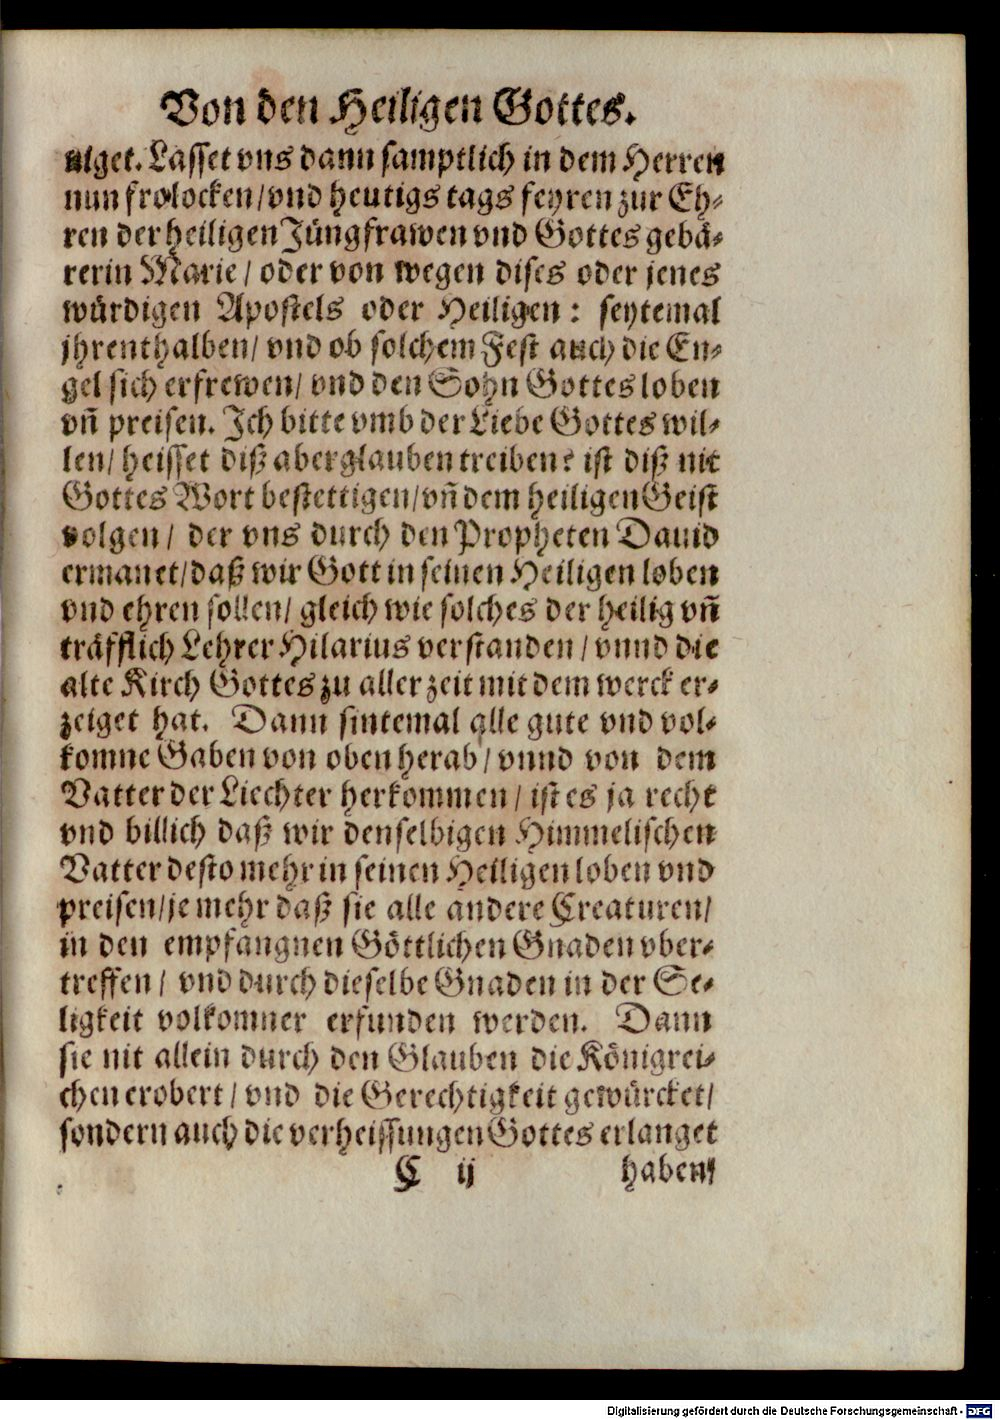 Von den Heiligen Gottes.
niget. Lasset vns dann samptlich in dem Herren
nun frolocken/ vnd heutigs tags feyren zur Eh-
ren der heiligen Jüngfrawen vnd Gottes gebä-
rerin Marie/ oder von wegen dises oder jenes
würdigen Apostels oder Heiligen: seytemal
jhrenthalben/ vnd ob solchem Fest auch die En-
gel sich erfrewen/ vnd den Sohn Gottes loben
vñ preisen. Ich bitte vmb der Liebe Gottes wil-
len/ heisset diß aberglauben treiben? ist diß nit
Gottes Wort bestettigen/ vñ dem heiligen Geist
volgen/ der vns durch den Propheten Dauid
ermanet/ daß wir Gott in seinen Heiligen loben
vnd ehren sollen/ gleich wie solches der heilig vñ
träfflich Lehrer Hilarius verstanden/ vnnd die
alte Kirch Gottes zu aller zeit mit dem werck er-
zeiget hat. Dann sintemal alle gute vnd vol-
komne Gaben von oben herab/ vnnd von dem
Vatter der Liechter herkommen/ ist es ja recht
vnd billich daß wir denselbigen Himmelischen
Vatter desto mehr in seinen Heiligen loben vnd
preisen/ je mehr daß sie alle andere Creaturen/
in den empfangnen Göttlichen Gnaden vber-
treffen/ vnd durch dieselbe Gnaden in der Se-
ligkeit volkomner erfunden werden. Dann
sie nit allein durch den Glauben die Königrei-
chen erobert/ vnd die Gerechtigkeit gewürcket/
sondern auch die verheissungen Gottes erlanget
C ij haben/
Digitalisierung gefördert durch die Deutsche Forschungsgemeinschaft - DFG